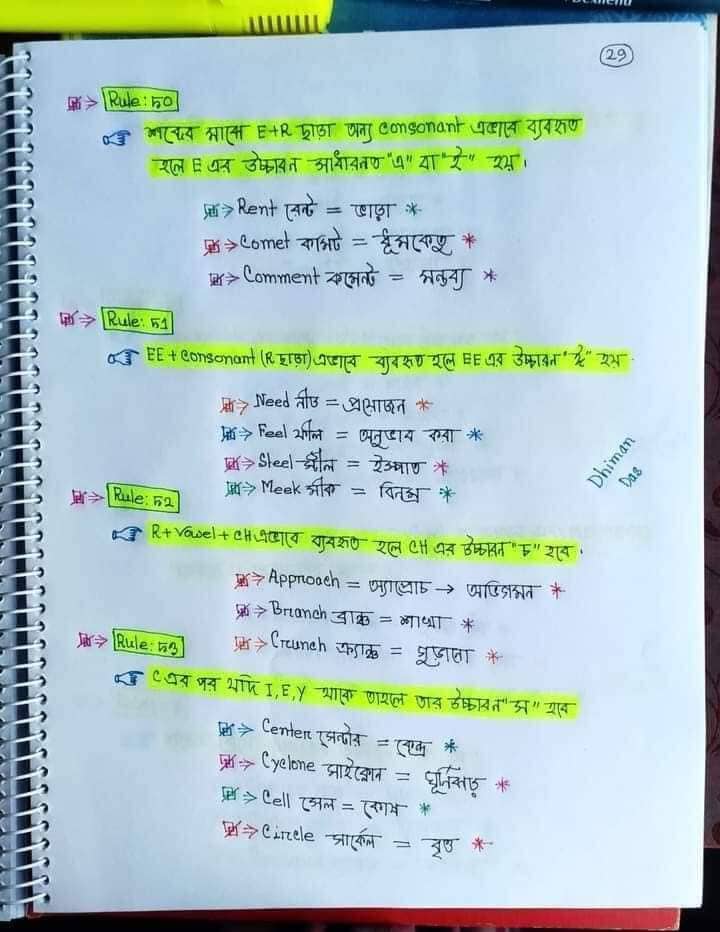 29
Rule: ৮০
শব্দের মাঝে E+R ছাড়া অন্য consonant এভাবে ব্যবহৃত
হলে E এর উচ্চারন সাধারনত "এ" বা "ই" হয়।
Rent রেন্ট = ভাড়া *
Comet কমিট = ধূমকেতু *
Comment কমেন্ট = মন্তব্য *
Rule: ৮১
EE + consonant (R ছাড়া) এভাবে ব্যবহৃত হলে EE এর উচ্চারন "ই" হয়.
Need নীড = প্রয়োজন *
Feel ফীল = অনুভব করা *
Steel স্টীল = ইস্পাত *
Meek মীক = বিনম্র *
Dhiman
Das
Rule: ৮২
R + Vowel + CH এভাবে ব্যবহৃত হলে CH এর উচ্চারন "চ" হবে.
Approach = অ্যাপ্রোচ → অভিগমন *
Branch ব্রাঞ্চ = শাখা *
Crunch ক্রাঞ্চ =
Rule: ৮৩
C এর পর যদি I, E, Y থাকে তাহলে তার উচ্চারন "স" হবে
Center সেন্টার = কেন্দ্র *
Cyclone সাইক্লোন = ঘূর্নিঝড় *
Cell সেল = কোষ *
Circle সার্কেল = বৃত্ত *